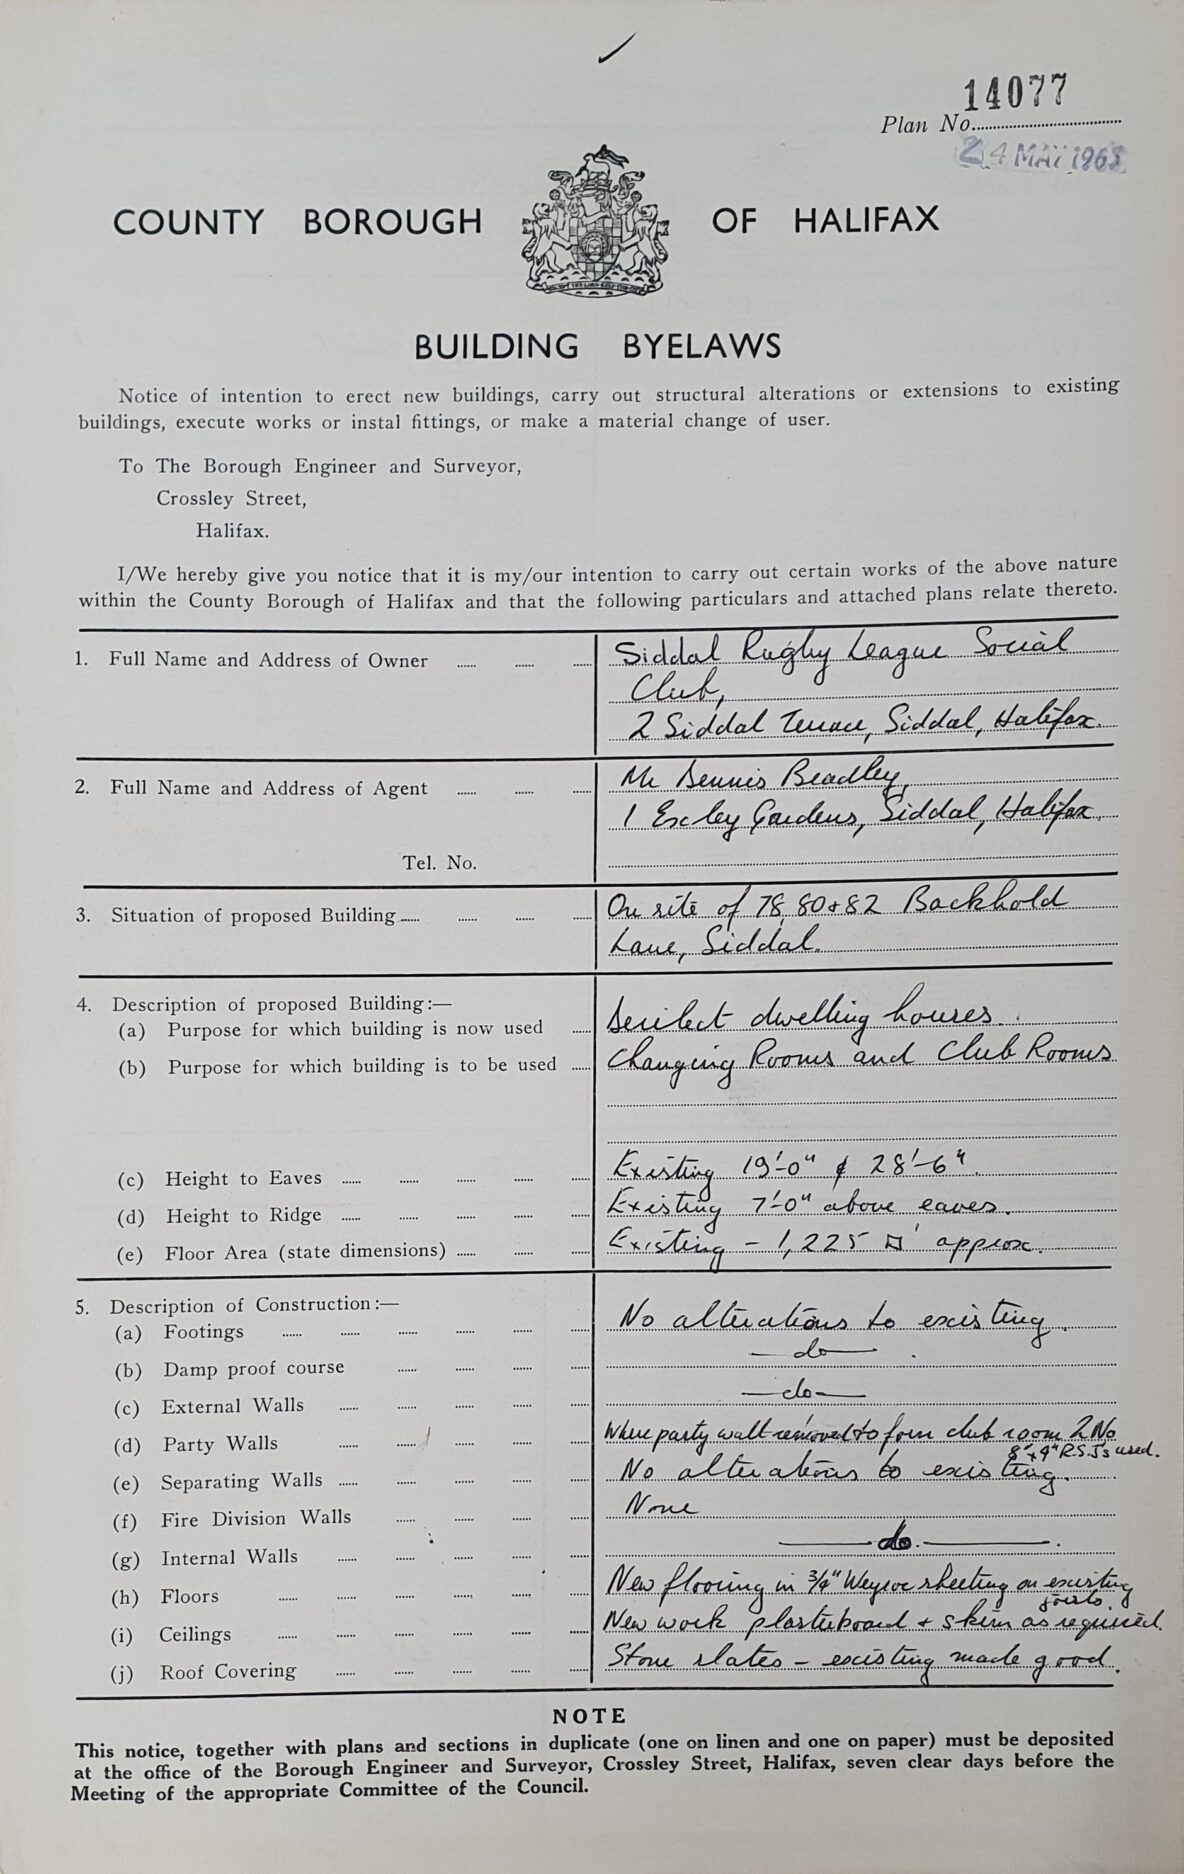 14077
Plan No.
24 MAY 1965
COUNTY BOROUGH OF HALIFAX
BUILDING BYELAWS
Notice of intention to erect new buildings, carry out structural alterations or extensions to existing
buildings, execute works or instal fittings, or make a material change of user.
To The Borough Engineer and Surveyor,
Crossley Street,
Halifax.
I/We hereby give you notice that it is my/our intention to carry out certain works of the above nature
within the County Borough of Halifax and that the following particulars and attached plans relate thereto.
1. Full Name and Address of Owner Siddal Rugby League Social
Club,
2 Siddal Terrace, Siddal, Halifax.
2. Full Name and Address of Agent Mr Dennis Bradley,
1 Exley Gardens, Siddal, Halifax.
Tel. No.
3. Situation of proposed Building On site of 78, 80 + 82 Backhold
Lane, Siddal.
4. Description of proposed Building:—
(a) Purpose for which building is now used Derilect dwelling houses.
(b) Purpose for which building is to be used Changing Rooms and Club Rooms
(c) Height to Eaves Existing 19'-0" & 28'-6".
(d) Height to Ridge Existing 7'-0" above eaves.
(e) Floor Area (state dimensions) Existing - 1,225 □' approx.
5. Description of Construction:—
(a) Footings No alterations to existing.
(b) Damp proof course — do — .
(c) External Walls — do —
(d) Party Walls Where party wall removed to form club room 2 No
8" x 4" R.S.Js used.
(e) Separating Walls No alterations to existing.
(f) Fire Division Walls None
(g) Internal Walls — do. — .
(h) Floors New flooring in 3/4" Weyroc sheeting on existing
joists.
(i) Ceilings New work plasterboard + skim as required.
(j) Roof Covering Stone slates - existing made good.
NOTE
This notice, together with plans and sections in duplicate (one on linen and one on paper) must be deposited
at the office of the Borough Engineer and Surveyor, Crossley Street, Halifax, seven clear days before the
Meeting of the appropriate Committee of the Council.